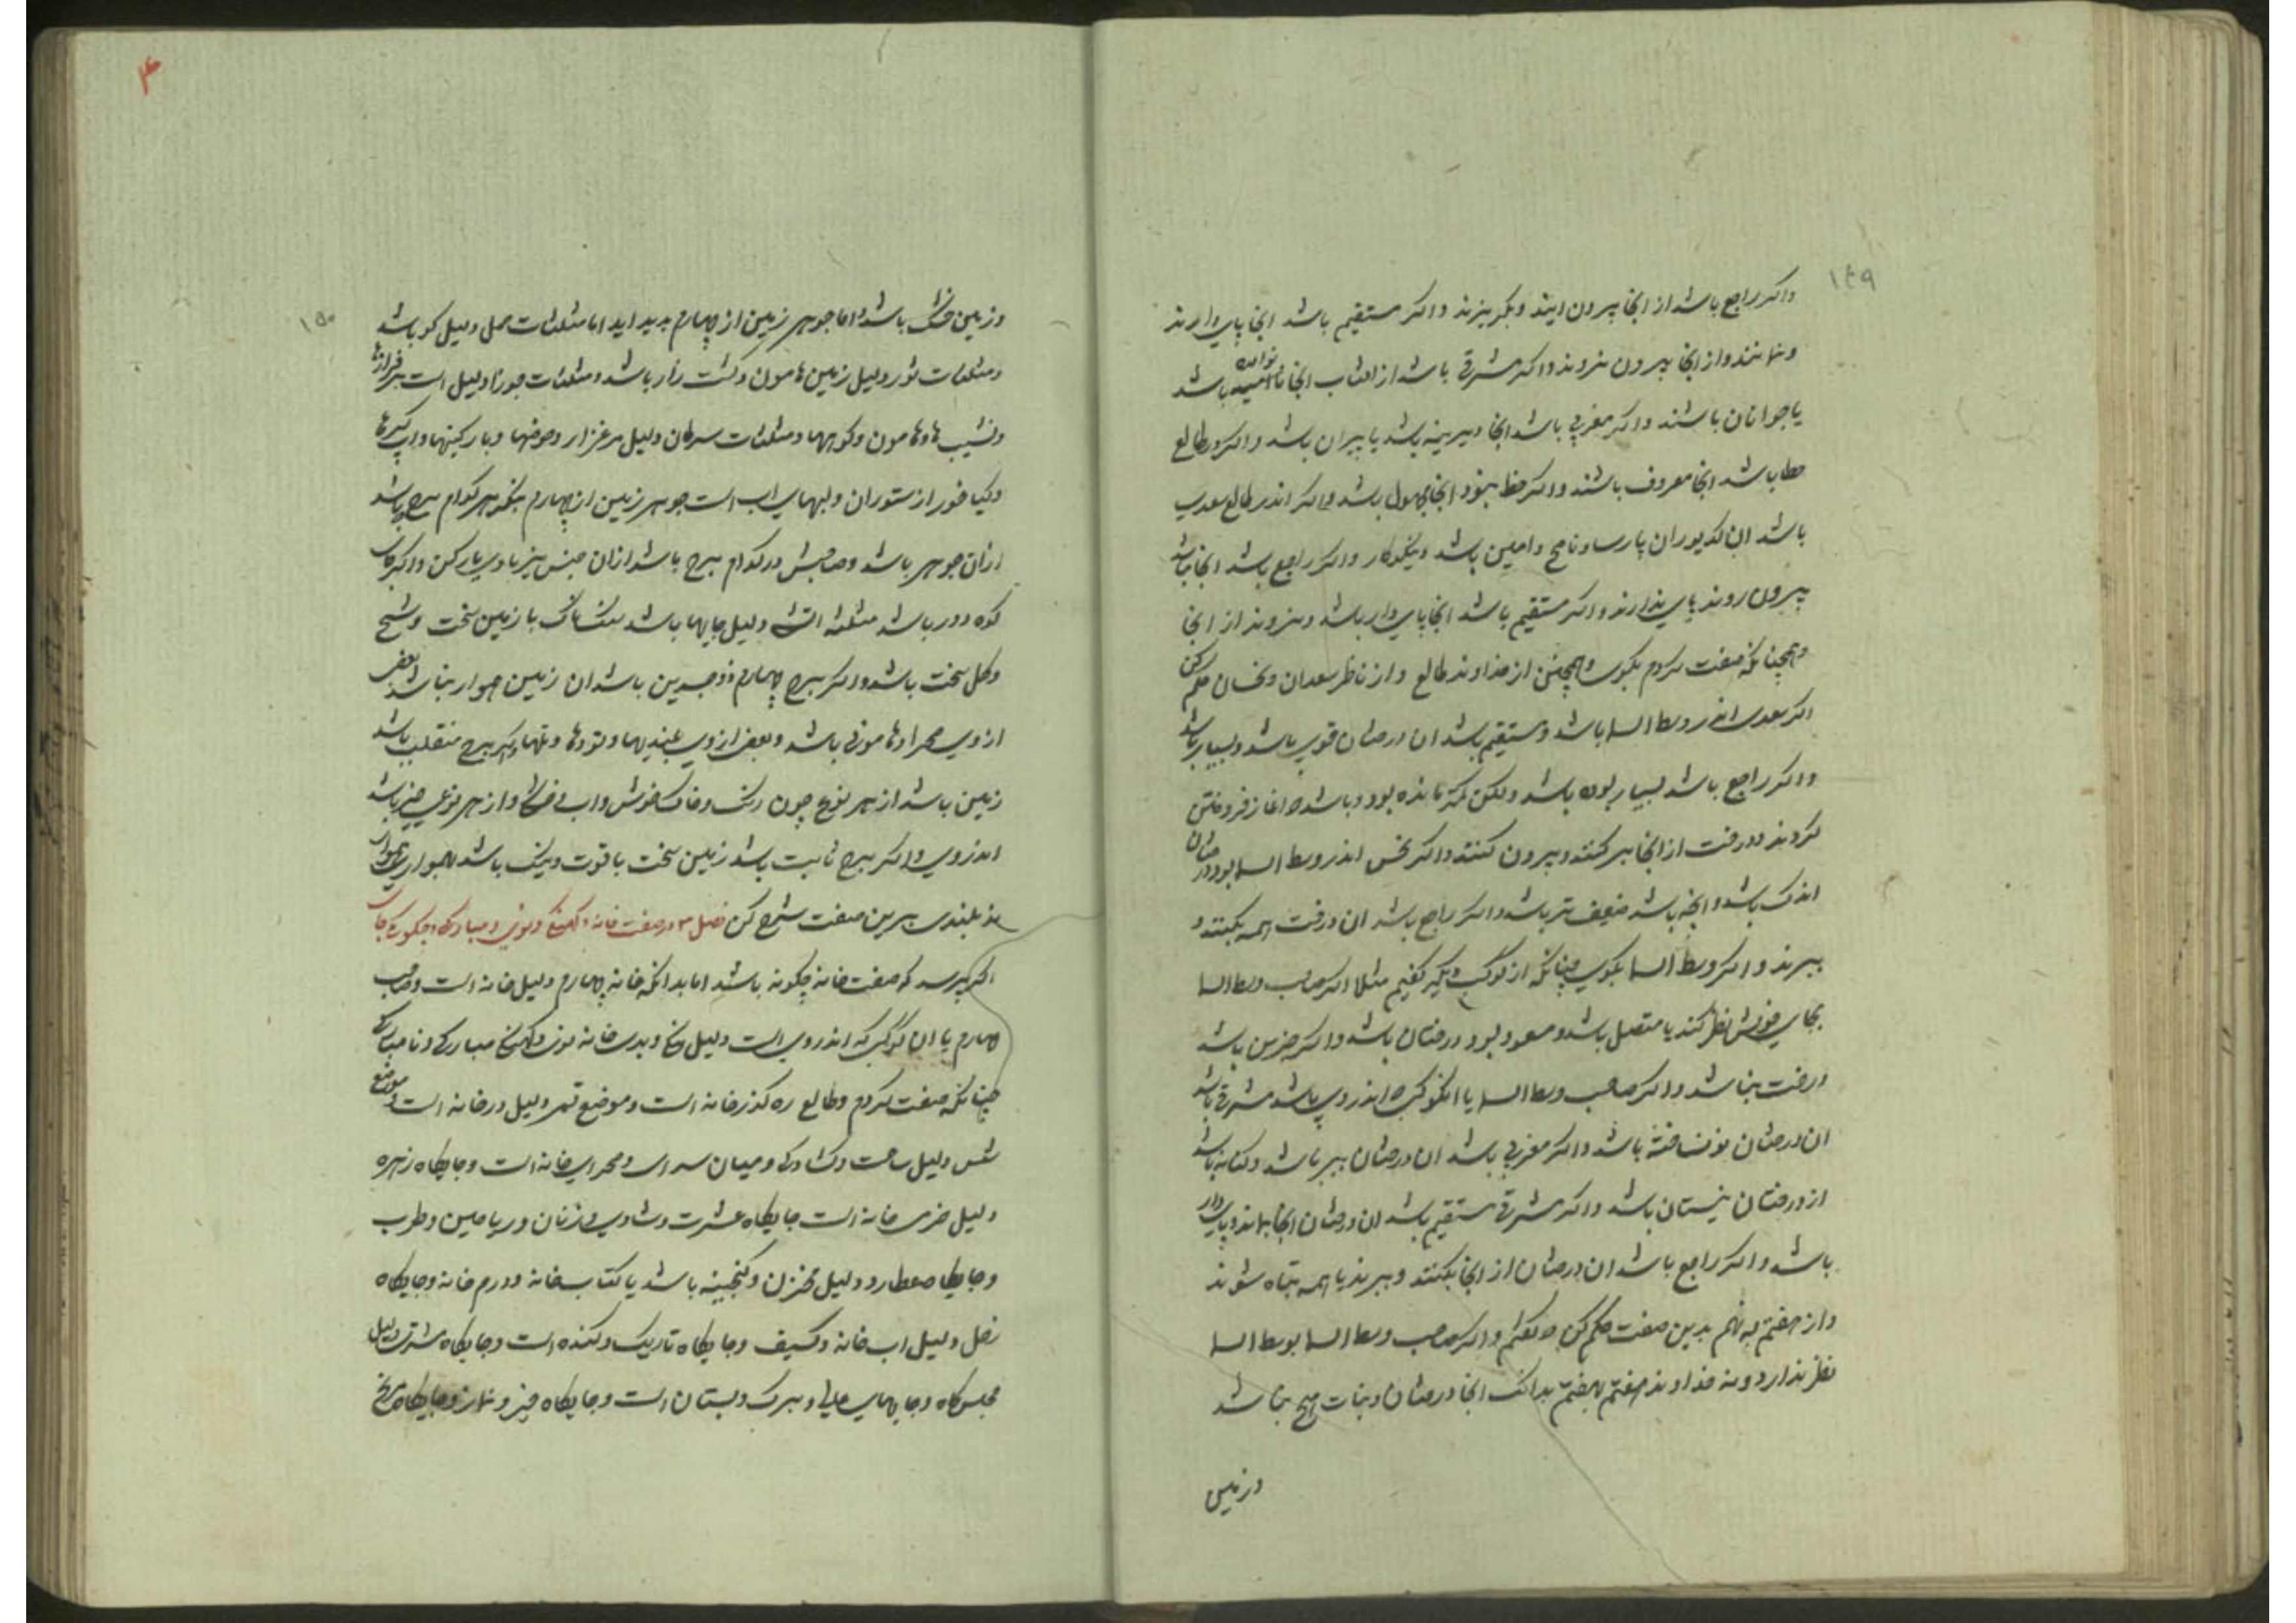 ۱۴۹
واکر راجع باشد از انجا بیرون ایند و بکریزند واکر مستقیم باشد انجا پای دارند
و بمانند و از انجا بیرون نروند واکر مشرقی باشد از انجا باشد
یا جوانان باشند واکر مغربی باشد انجا دیرینه باشد یا پیران باشد واکر در طالع
باشد انجا معروف باشند واکر انجا مجهول باشد واکر اندر طالع سعدی
باشد ان کدیوران پارسا و ناصح و امین باشد و نیکوکار واکر راجع باشد انجا نباشد
بیرون روند پای ندارند واکر مستقیم باشد انجا پای دار باشد و نروند از انجا
و همچنانکه صفت کردم بکوی و همچنین از خداوند طالع و از ناظر سعدان و نحسان حکم کن
اکر سعدی اندر وسط السما باشد و مستقیم باشد ان درختان قوی باشد و بسیار باشد
واکر راجع باشد بسیار بوده باشد ولکن کمتر مانده بود و باشد که اغاز فروختن
کردند و درخت از انجا بر کنند و بیرون کنند واکر نحس اندر وسط السما بود درختان
اندک باشد و انچه باشد ضعیف تر باشد واکر راجع باشد ان درخت همه بکنند و
ببرند واکر وسط السما بکوی چنانکه از کوکب دیکر کفتیم مثلا اکر صاحب وسط السما
بجای خویش نظر کند یا متصل باشد و مسعود بود درختان باشد واکر جزین باشد
درخت نباشد واکر صاحب وسط السما یا انکوکب که اندروی باشد مشرقی باشد
ان درختان نونشاخته باشد واکر مغربی باشد ان درختان پیر باشد و باشد
از درختان نیستان باشد واکر مشرقی مستقیم باشد ان درختان انجا بماند و پای دار
باشد واکر راجع باشد ان درختان از انجا بکنند و ببرند یا همه تباه شوند
و از هفتم به نهم بدین صفت حکم کن که کفتم واکر صاحب وسط السما بوسط السما
نظر ندارد و نه خداوند هفتم بهفتم بدانک انجا درختان و نبات هیچ نباشد
و زمین
۴
۱۵۰
و زمین خشک باشد و اما جوهر زمین از چهارم پدید اید اما مثلثات حمل دلیل کوه باشد
و مثلثات ثور دلیل زمین هامون و کشت زار باشد و مثلثات جوزا دلیل است بر فرازها
و نشیب ها و هامون و کوهها و مثلثات سرطان دلیل مرغزار و حوضها و بارکینها و اب کیرها
و کیا خور از ستوران و لبهای اب است جوهر زمین از چهارم بنکر هر کدام برج باشد
ازان جوهر باشد و صاحبش در کدام برج باشد ازان جنس نیز با وی یار کن واکر
کوه و در باشد مثلثه اتشی دلیل جایها باشد سنکناک با زمین سخت و شخ
و کل سخت باشد واکر برج چهارم ذوجسدین باشد ان زمین هموار نباشد بعضی
ازوی صحرا و هامونی باشد و بعضی ازوی بلندیها و تودها و تلها واکر برج منقلب باشد
زمین باشد از هر نوع چون ریک و خاک خوش و اب و خشکی و از هر نوعی چیز باشد
اندروی واکر برج ثابت باشد زمین سخت با قوت و نیک باشد
نه بلندی برین صفت شرح کن فصل ۳ در صفت خانه و کهنکی و نوی و مبارکی و چکونکی جای
اکر پرسد که صفت خانه چکونه باشد اما بدانکه خانه چهارم دلیل خانه است و صاحب
چهارم یا ان کوکبی که اندروی است دلیل نیکی و بدی خانه نوی و کهنکی مبارکی و نامبارکی
چنانکه صفت کردم و طالع ره کذر خانه است و موضع قمر دلیل در خانه است و موضع
شمس دلیل ساحت و کشادکی و میان سرای و صحرای خانه است و جایکاه زهره
دلیل خرمی خانه است جایکاه عشرت و شادی و زنان و ریاحین و طرب
و جایکاه عطارد دلیل مخزن و کنجینه باشد یا کتاب خانه و درم خانه و جایکاه
زحل دلیل اب خانه و کنیف و جایکاه تاریک و کنده است و جایکاه مشتری دلیل
مجلس کاه و جایهای عالی و برک و بستان است و جایکاه خیز و نماز و جایکاه مریخ